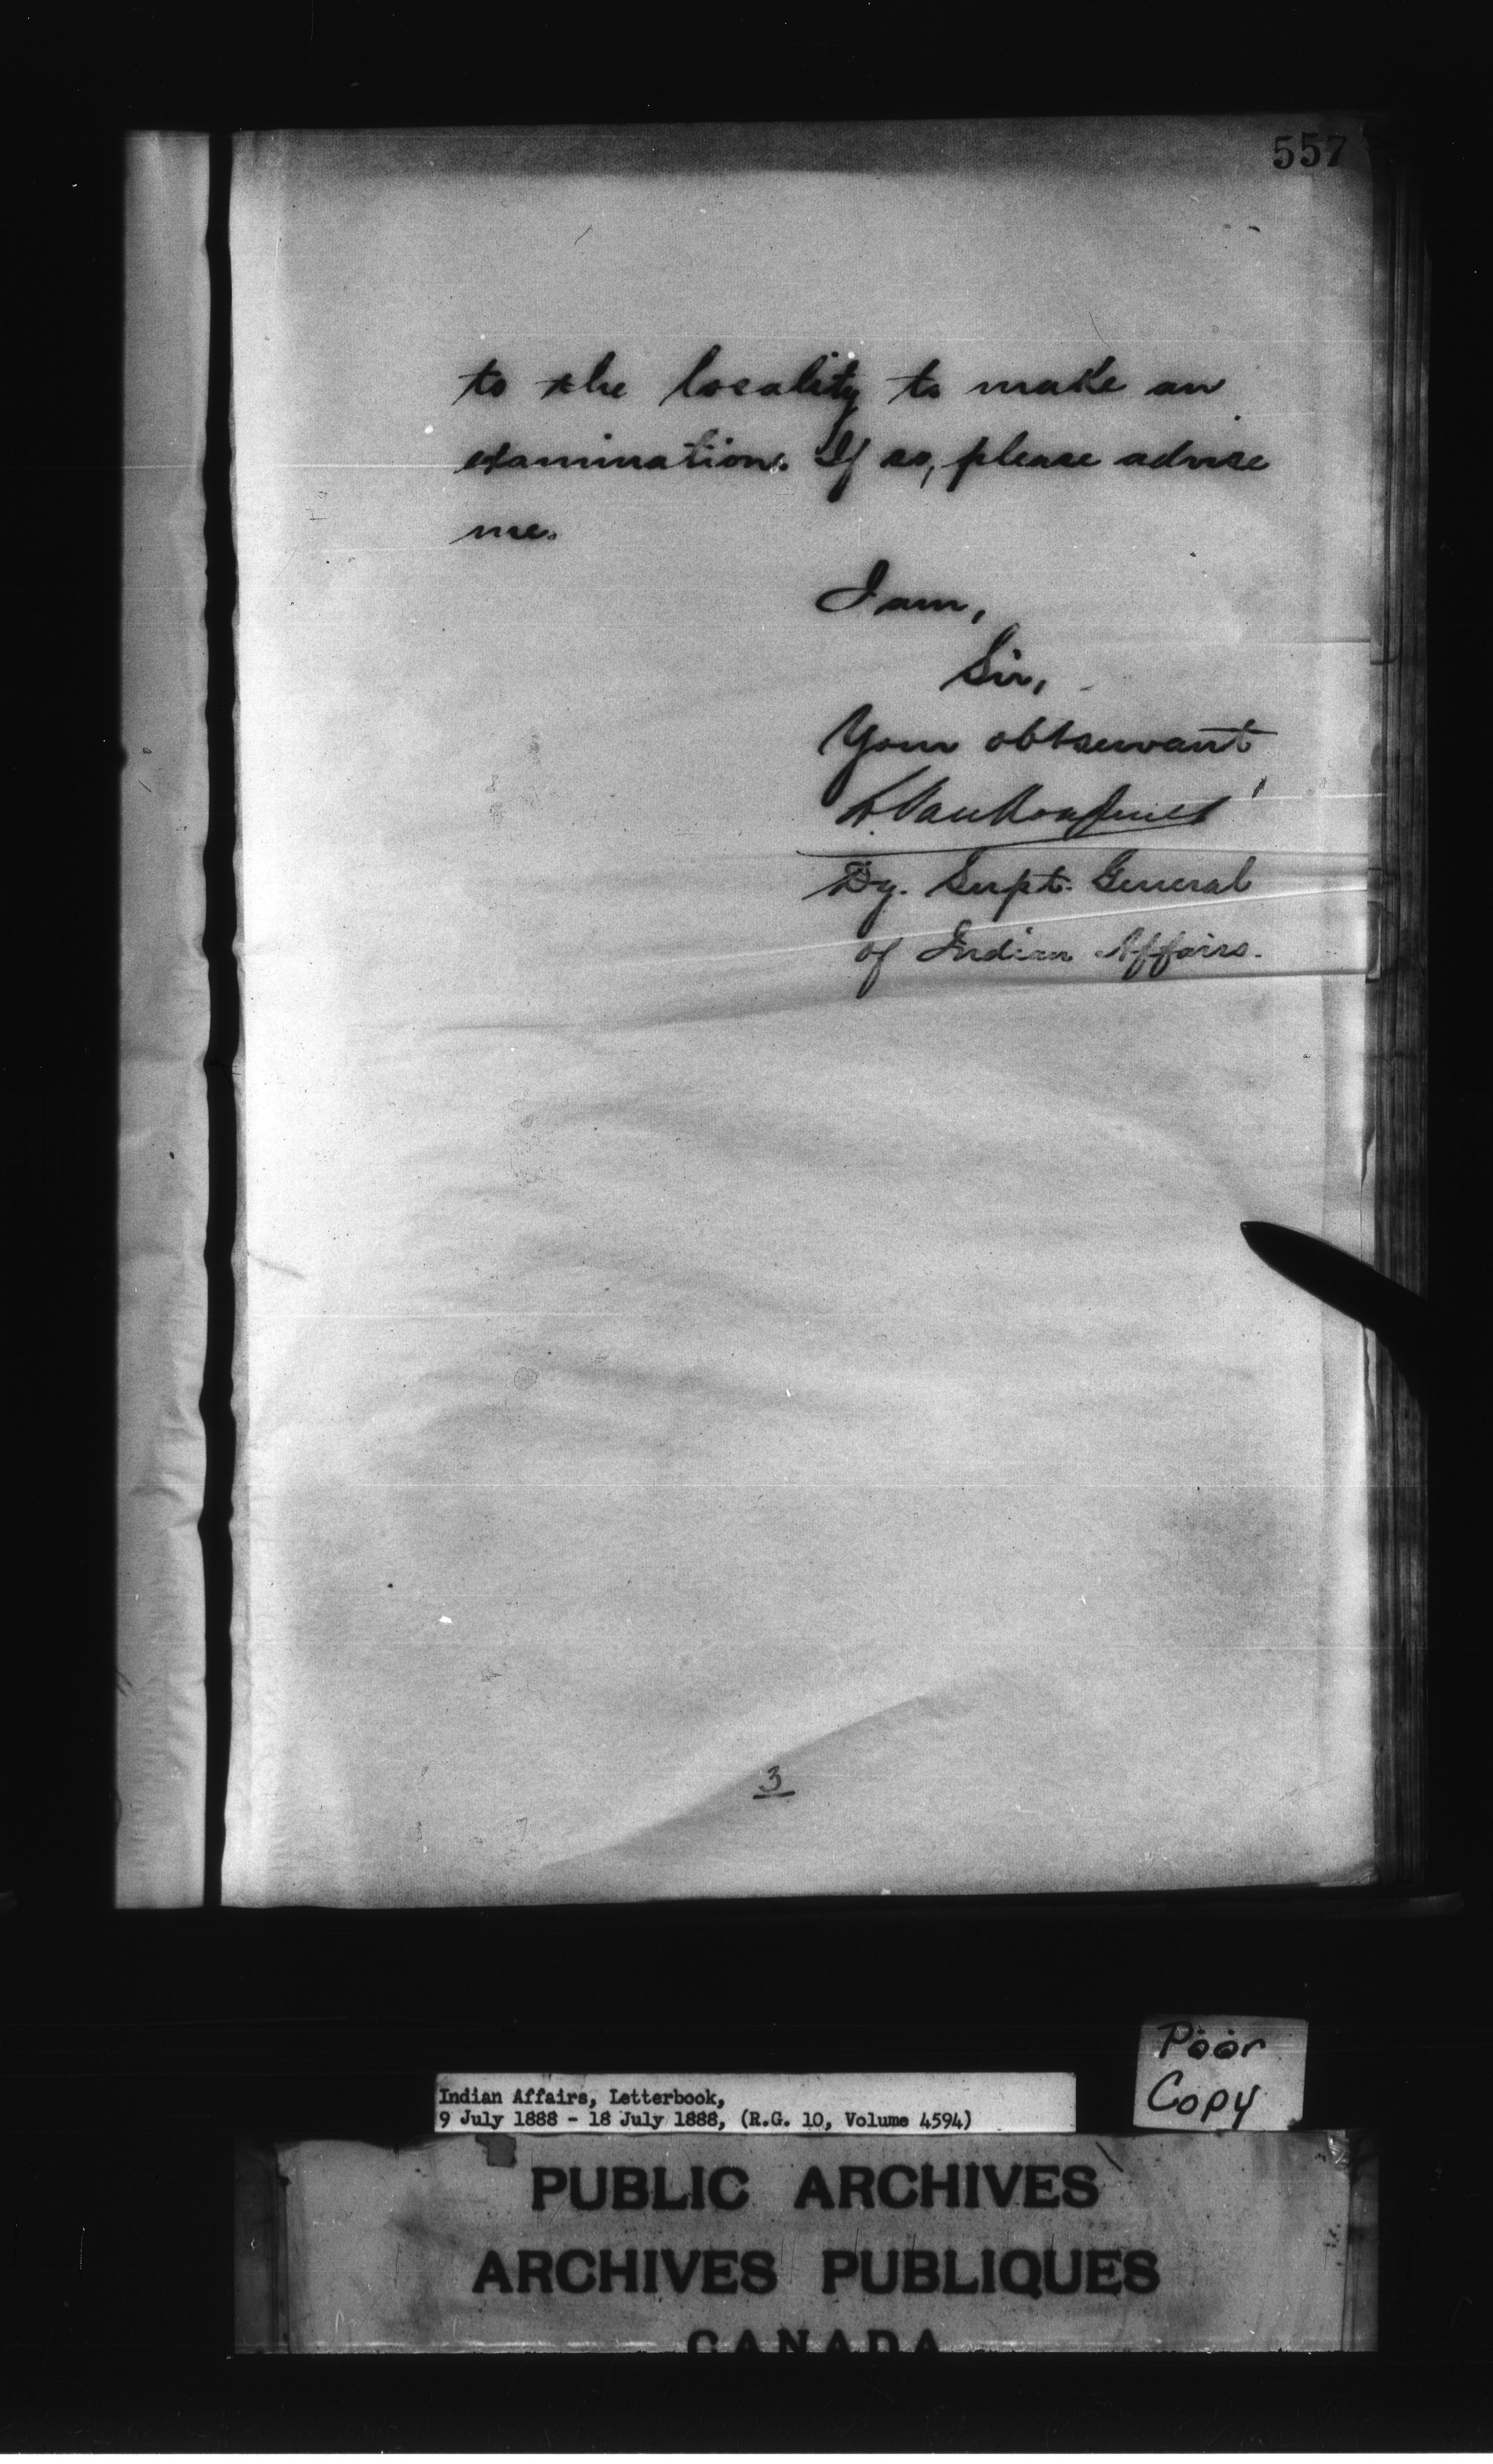 557
to the locality to make an
examination. If so, please advise
me.
I am,
Sir,
Your obtservant
L. VanKoughnet
Dy. Supt. General
of Indian Affairs.
3
Poor
Copy
Indian Affairs, Letterbook,
9 July 1888 - 18 July 1888, (R.G. 10, Volume 4594)
PUBLIC ARCHIVES
ARCHIVES PUBLIQUES
CANADA